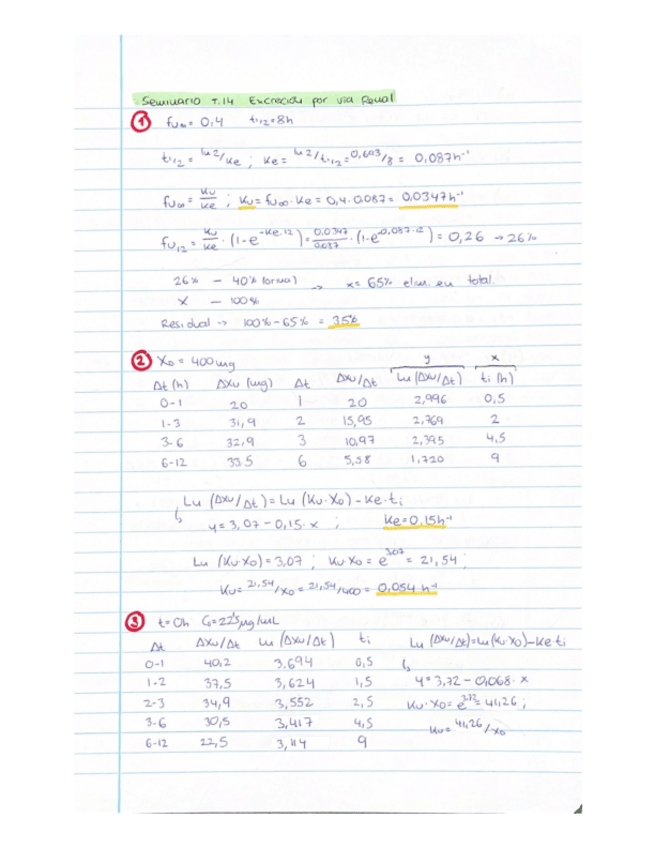 Seminario T.14 Excreción por vía Renal
① fu∞ = 0,4 t1/2 = 8h
t1/2 = ln2/Ke ; Ke = ln2/t1/2 = 0,693/8 = 0,087h⁻¹
fu∞ = Ku/Ke ; Ku = fu∞·Ke = 0,4·0.087 = 0,0347h⁻¹
fu12 = Ku/Ke · (1-e^-Ke.12) = 0,0347/0.087 · (1-e^-0,087·12) = 0,26 → 26%
26% — 40% (orina) → x = 65% elim. en total.
X — 100%
Residual → 100% - 65% = 35%
② X₀ = 400mg
y x
Δt (h) ΔXu (mg) Δt ΔXu/Δt Ln (ΔXu/Δt) ti (h)
0-1 20 1 20 2,996 0,5
1-3 31,9 2 15,95 2,769 2
3-6 32,9 3 10,97 2,395 4,5
6-12 33.5 6 5,58 1,720 9
Ln (ΔXu/Δt) = Ln (Ku·X₀) - Ke·ti
↳ y = 3,07 - 0,15·x ; Ke = 0,15h⁻¹
Ln (Ku·X₀) = 3,07 ; Ku·X₀ = e^3,07 = 21,54 ;
Ku = 21,54/X₀ = 21,54/400 = 0,054 h⁻¹
③ t = 0h C₀ = 22'5 µg/mL
Δt ΔXu/Δt Ln (ΔXu/Δt) ti Ln (ΔXu/Δt) = Ln (Ku·X₀) - Ke ti
0-1 40,2 3,694 0,5 ↳
1-2 37,5 3,624 1,5 y = 3,72 - 0,068·x
2-3 34,9 3,552 2,5 Ku·X₀ = e^3.72 = 41,26 ;
3-6 30,5 3,417 4,5 Ku = 41,26/X₀
6-12 22,5 3,114 9